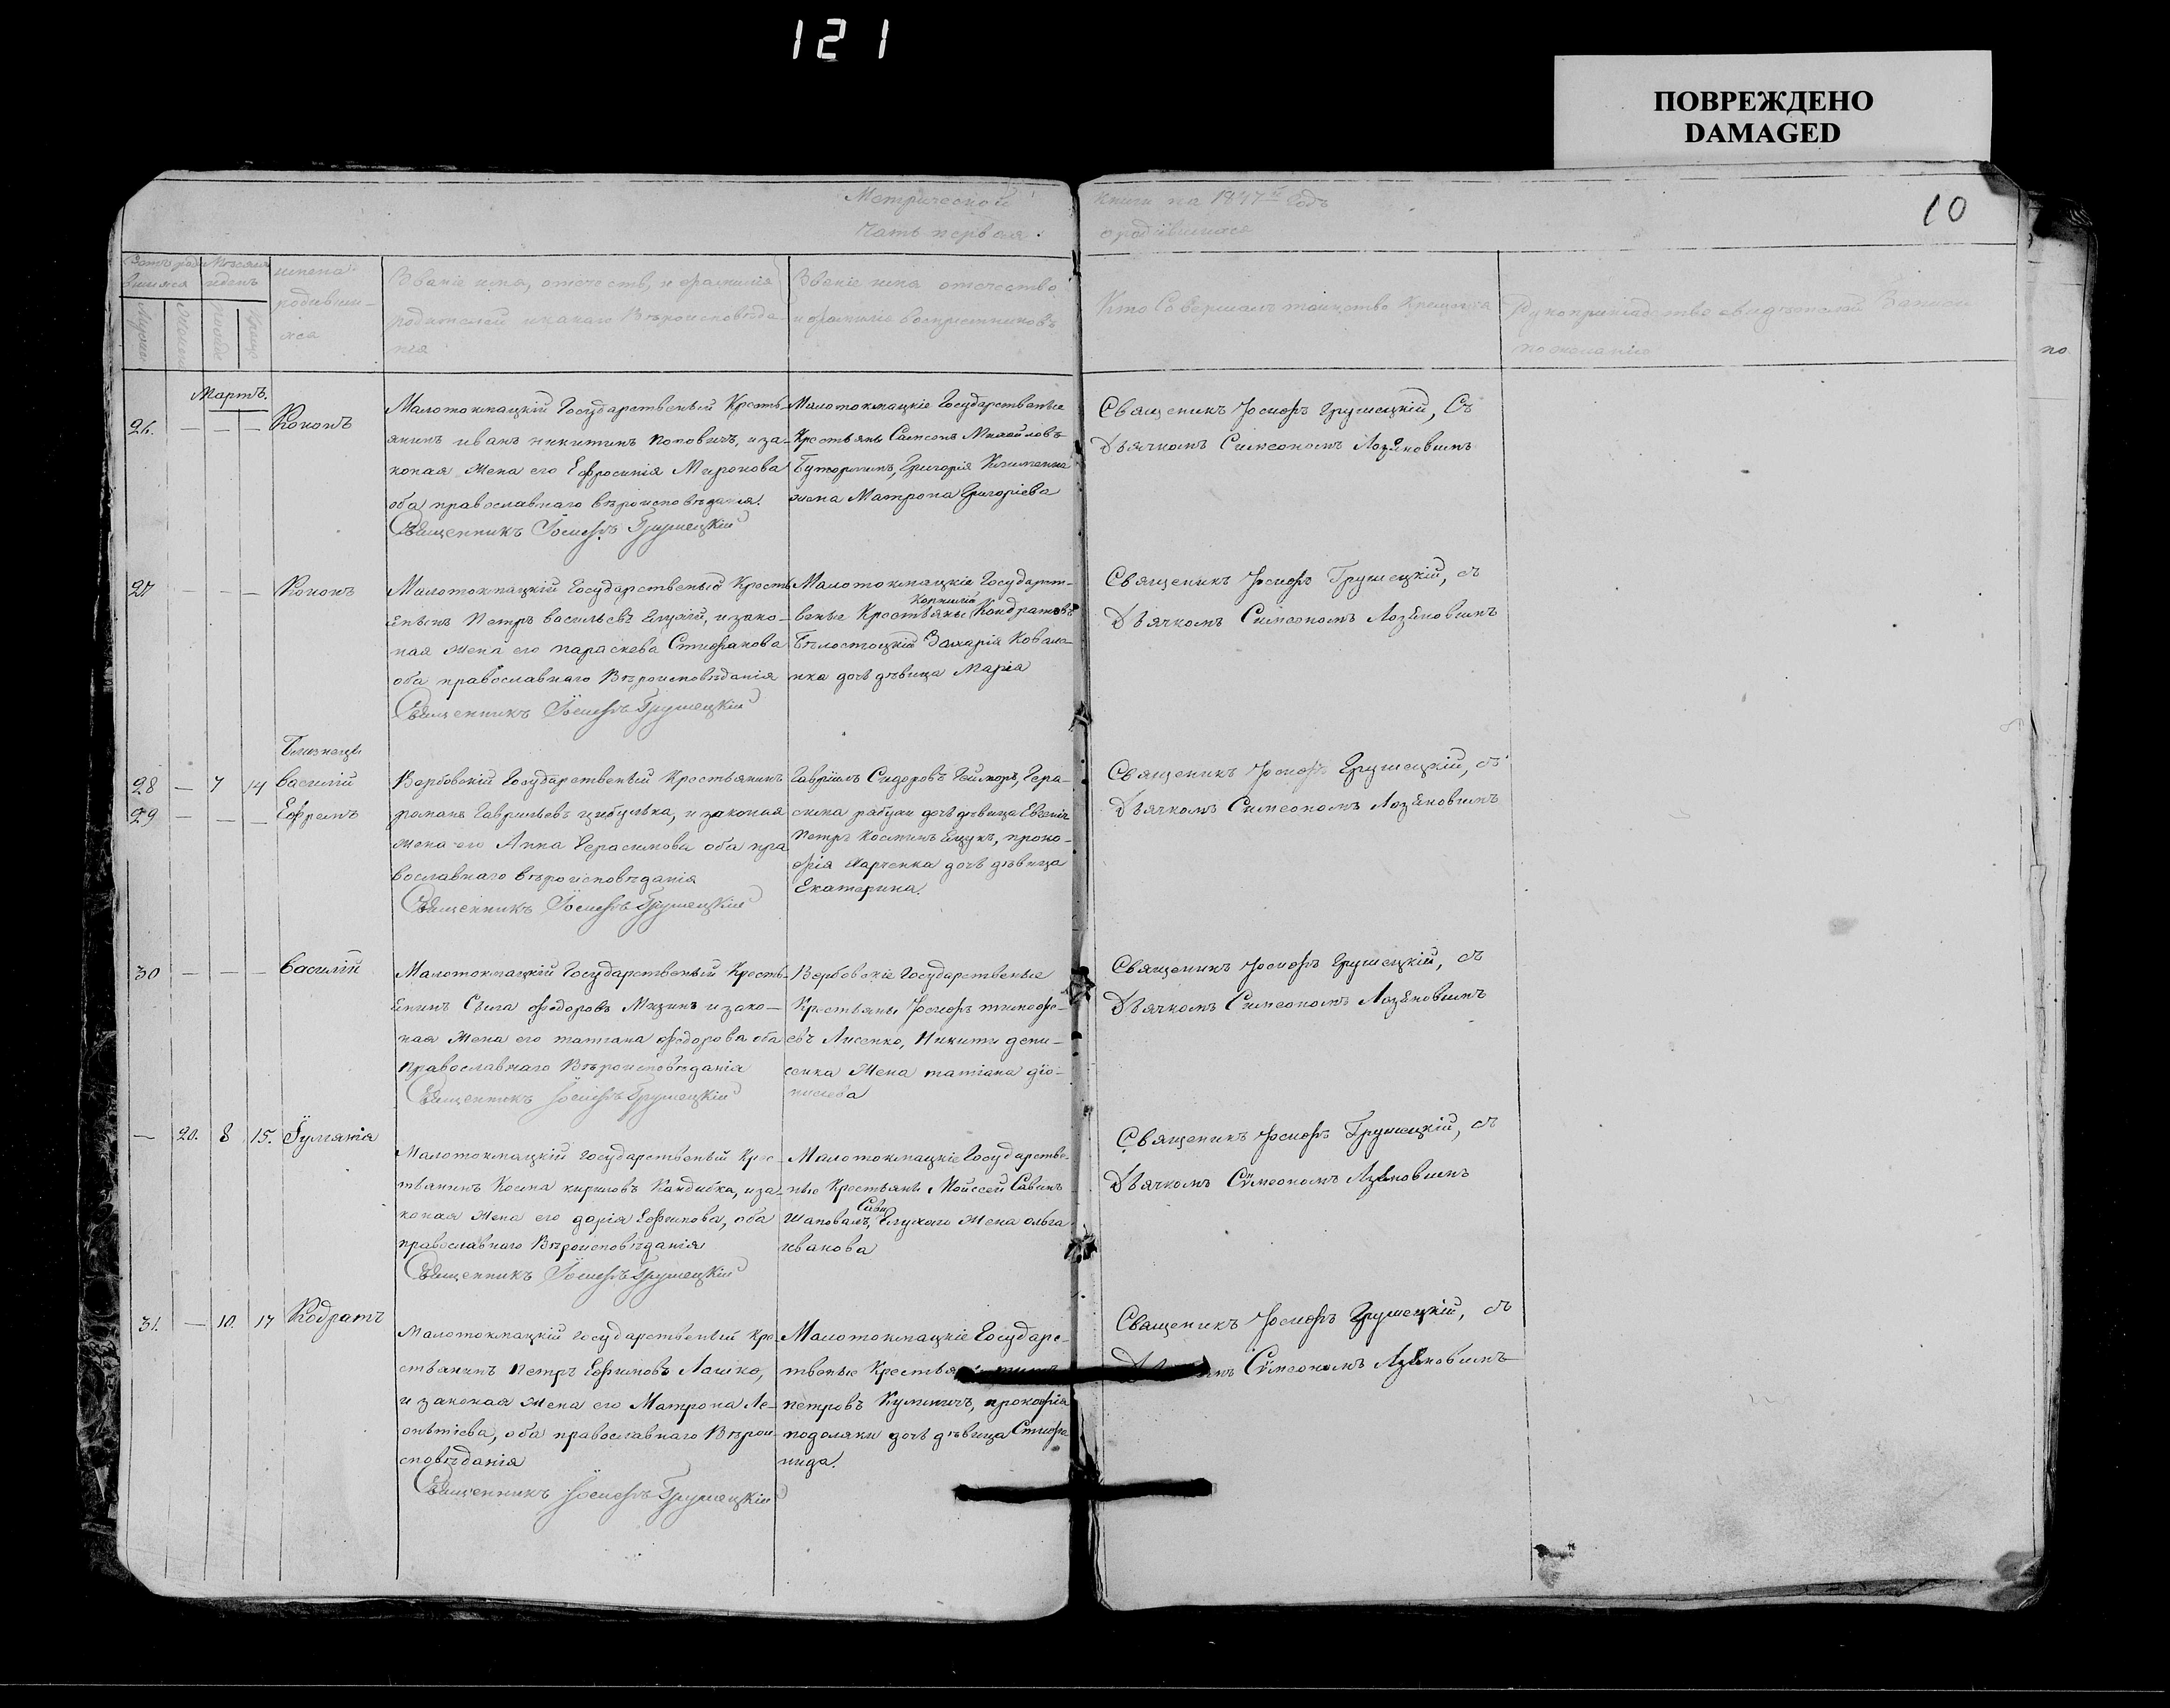 121
ПОВРЕЖДЕНО
DAMAGED
10
Метрической
Часть первая.
книги на 1847й годъ
о родившихся
имена
родивши-
хся
Званіе имя, отечество, и фамилія
родителей и какаго Вѣроисповѣда-
нія
Званіе имя отечество
и фамилія воспріемниковъ
Кто Совершалъ таинство Крещенія
Рукоприкладство свидѣтелей Записи
по желанію
по
Мартъ.
26. — — — Кононъ
Малотокмацкій Государственый Кресть-
янинъ иванъ никитинъ Поповичъ, и за-
коная жена его Ефросинія Миронова
оба православнаго вѣроисповѣданія.
Священникъ Іосифъ Грушецкій
Малотокмацкіе Государственые
Крестьяне Самсонъ Михайловъ
Буторминъ, Григорія Клименка
жена Матрона Григоріева
Священикъ Іосифъ Грушецкій, Съ
Дѣячкомъ Симеономъ Лозяновимъ
27 — — — Кононъ
Малотокмацкій Государственый Кресть
янинъ Петръ васильевъ Елуній, и зако-
ная жена его параскева Стифанова
оба православнаго Вѣроисповѣданія
Священникъ Іосифъ Грушецкій
Малотокмацкіе Государст-
веные Крестьяны Корнилій Кондратовъ
Бѣлостоцкій Захарія Ковале-
нка дочь дѣвица Марія
Священикъ Іосифъ Грушецкій, съ
Дѣячкомъ Симеономъ Лозяновимъ
Близнецы
28 — 7 14 василій
29 — — — Ефремъ
Вербовскій Государственый Крестьянинъ
романъ Гаврильевъ цибулька, и законая
жена его Анна Герасимова оба пра
вославнаго вѣроисповѣданія
Священникъ Іосифъ Грушецкій
Гавріилъ Сидоровъ Гейморъ, Гера-
сима рабухи дочь дѣвица Евгенія
Петръ Косминъ Ещукъ, проко-
фія Марченка дочь дѣвица
Екатерина.
Священикъ Іосифъ Грушецкій, съ
Дѣячкомъ Симеономъ Лозяновимъ
30 — — — василій
Малотокмацкій Государственый Кресть-
янинъ Сила федоровъ Мизинъ и зако-
ная жена его татіана федорова оба
Православнаго Вѣроисповѣданія
Священникъ Іосифъ Грушецкій
Вербовскіе Государственые
Крестьяны Іосифъ тимофе-
евъ Лисенко, Никити дени-
сенка жена татіана діо-
нисіева
Священикъ Іосифъ Грушецкій, съ
Дѣячкомъ Симеономъ Лозяновимъ
— 20. 8 15. Іуліянія
Малотокмацкій государственый Крес-
тьянинъ Косма кириловъ Кандибка, и за-
коная жена его дарія Ефимова, оба
православнаго Вѣроисповѣданія
Священникъ Іосифъ Грушецкій
Малотокмацкіе Государстве-
ные Крестьяне Мойссей Савинъ
Шаповалъ, Сави Глухаго жена ольга
иванова
Священикъ Іосифъ Грушецкій, съ
Дѣячкомъ Сѵмеономъ Лзяновимъ
31. — 10. 17 Кодратъ
Малотокмацкій государственый Кре
стьянинъ Петръ Ефимовъ Лашко,
и законая жена его Матрона Ле-
онтіева, оба православнаго Вѣрои-
сповѣданія
Священникъ Іосифъ Грушецкій
Малотокмацкіе Государс-
твеные
петровъ Куминичъ, прокофія
подоляки дочь дѣвица Стифа
нида.
Священикъ Іосифъ Грушецкій, съ
Сѵмеономъ Лзяновимъ